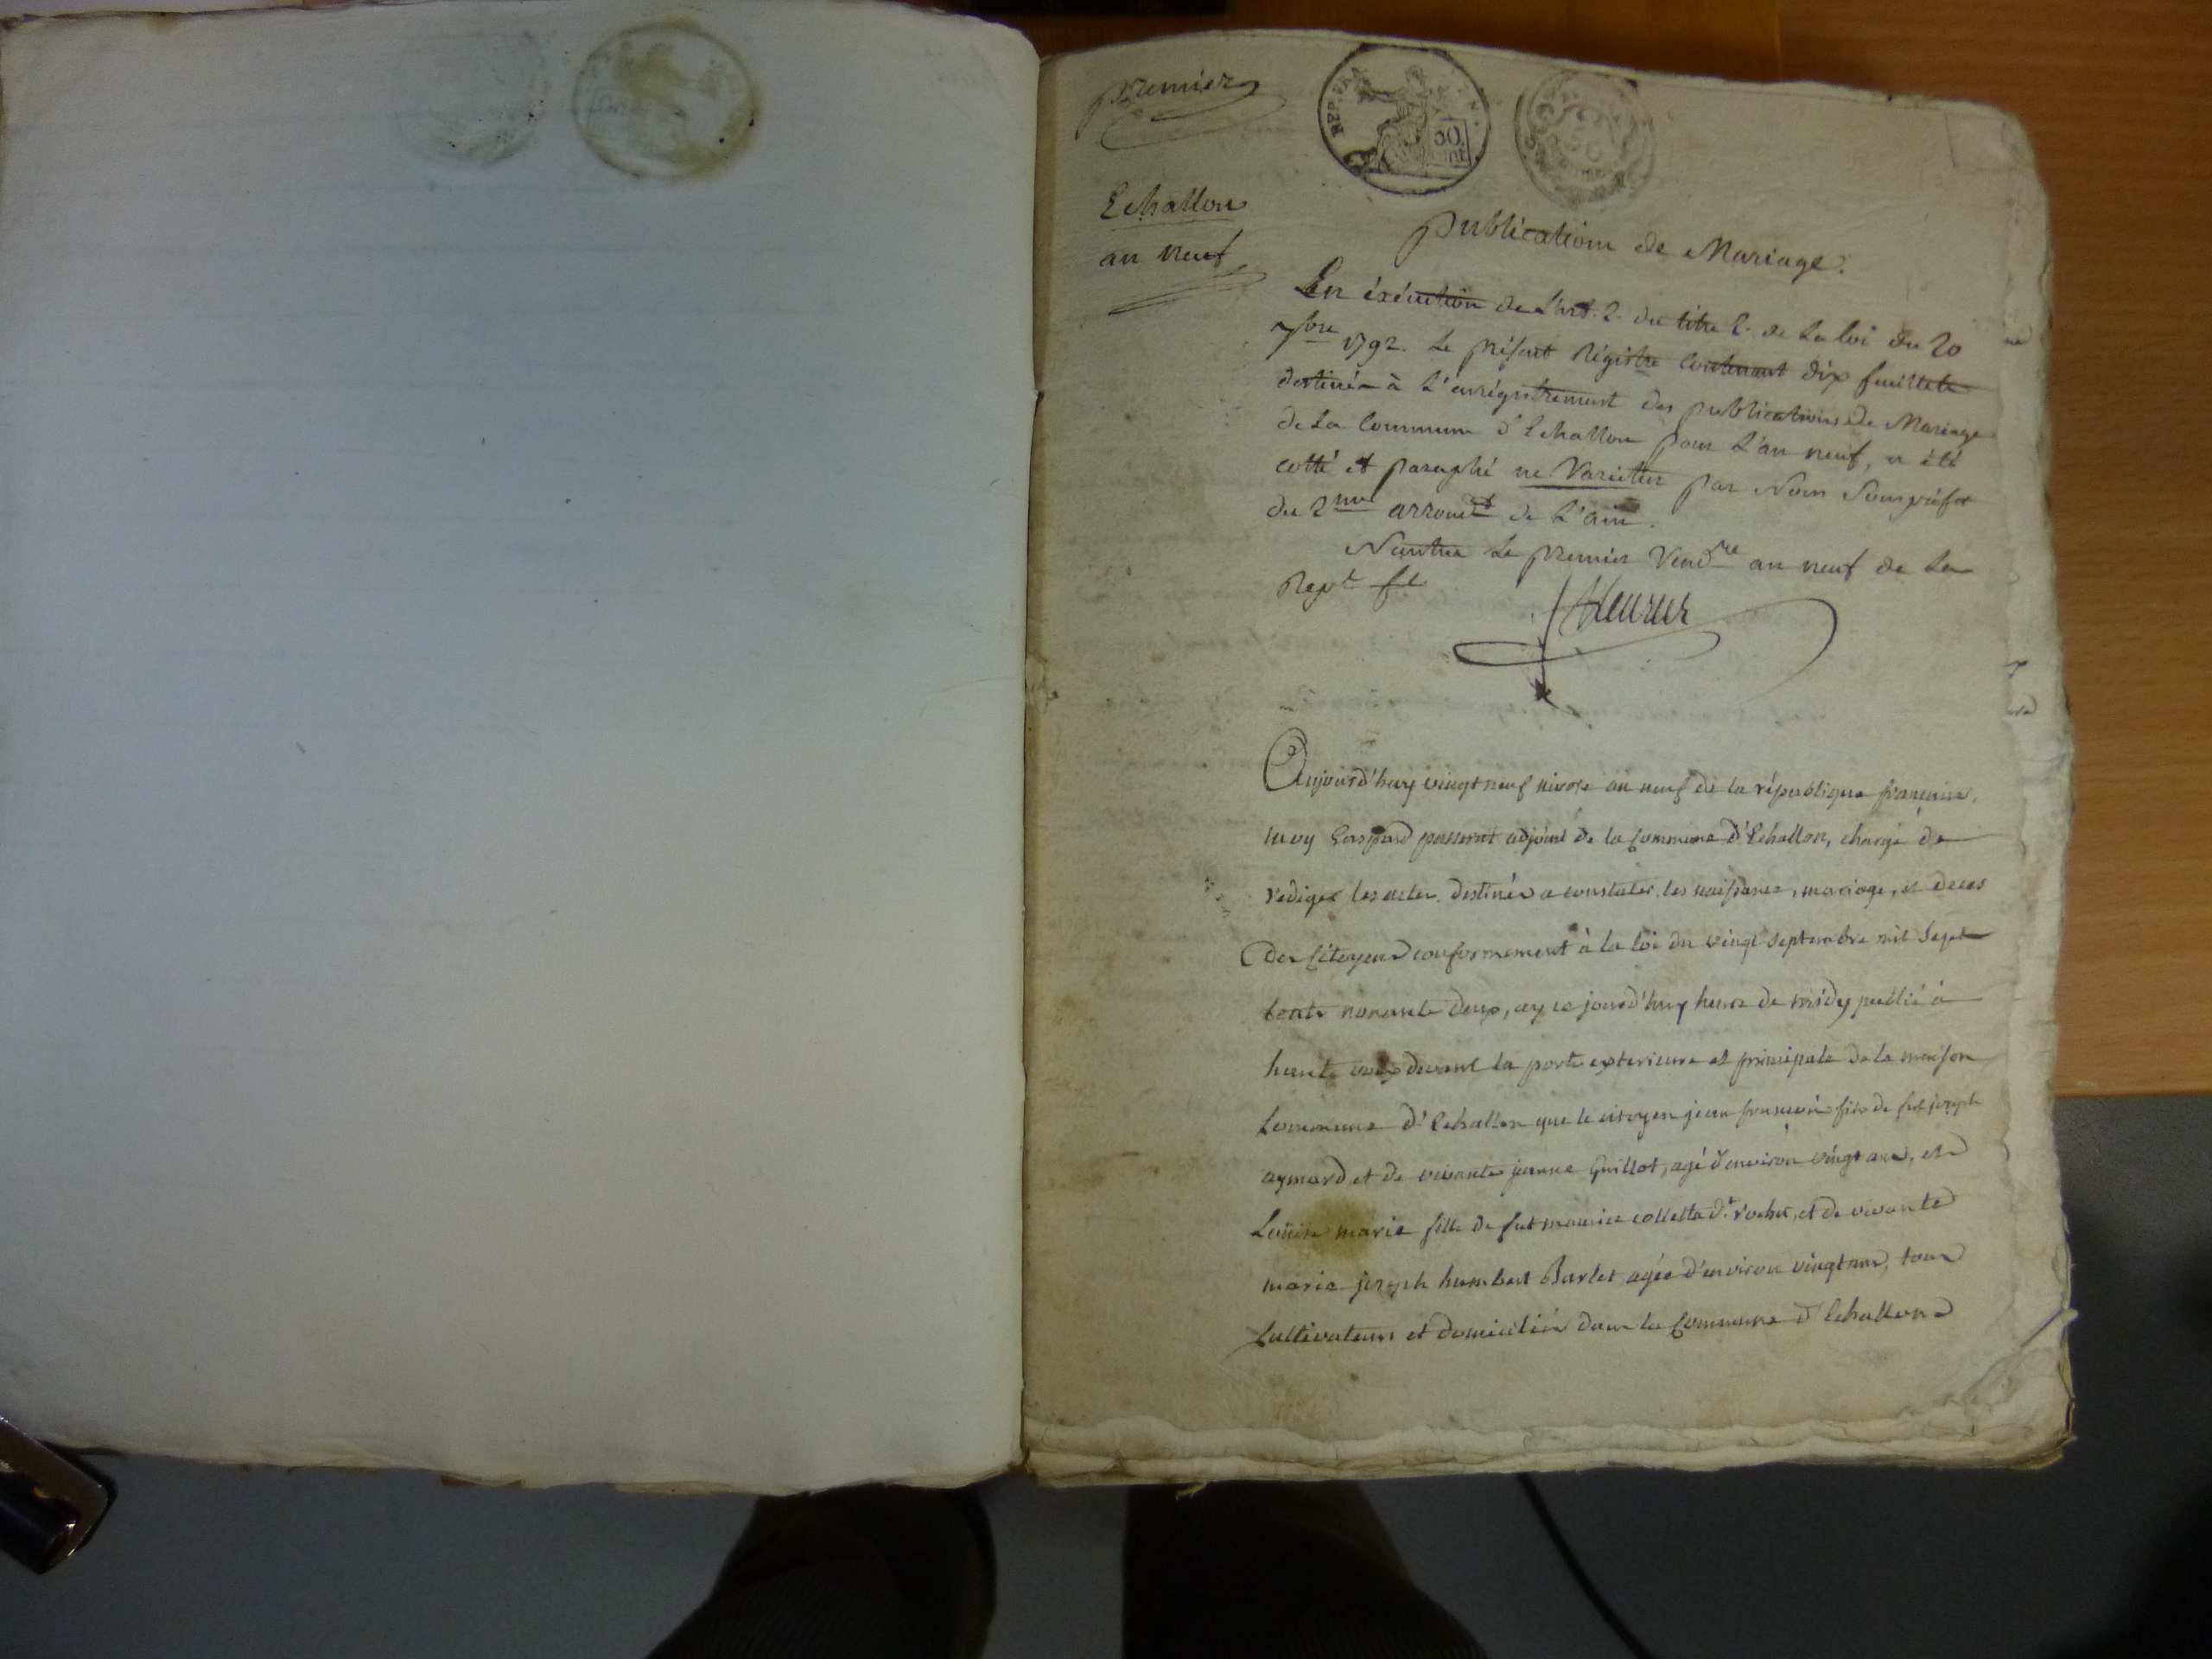 premier
Echallon
an neuf
REP. FRA
50
publication de Mariage.
En éxécution de L'art. 2. du titre 2. de La loi du 20
7bre 1792. Le présent Régistre contenant dix feuillets
destiné à L'enrégistrement des publications de Mariage
de La Commune d'Echallon pour L'an neuf, a été
cotté et paraphé ne Varietur par Nous Souspréfet
du 2me arrondt de L'ain.
Nantua Le premier Vendre an neuf de La
Repe fse
Aujourd'huy vingt neuf nivose an neuf de la république francaise,
moy Gaspard passerat adjoint de la Commune d'Echallon, chargé de
rediger les actes destinés a constater les naissance, mariage, et deces
des Citoyens conformement à la loi du vingt septembre mil sept
cents nonante deux, ay ce jourd'huy heure de midy publié à
haute voix devant la porte exterieure et principale de la maison
Commune d'Echallon que le citoyen jean francois fils de fut joseph
aymard et de vivante jeanne Guillot, agé d'environ vingt ans, et
Louise marie fille de fut maurice colletta dt rochet, et de vivante
marie joseph humbert Barlet agée d'environ vingt ans, tous
Cultivateurs et domiciliés dans la Commune d'Echallon